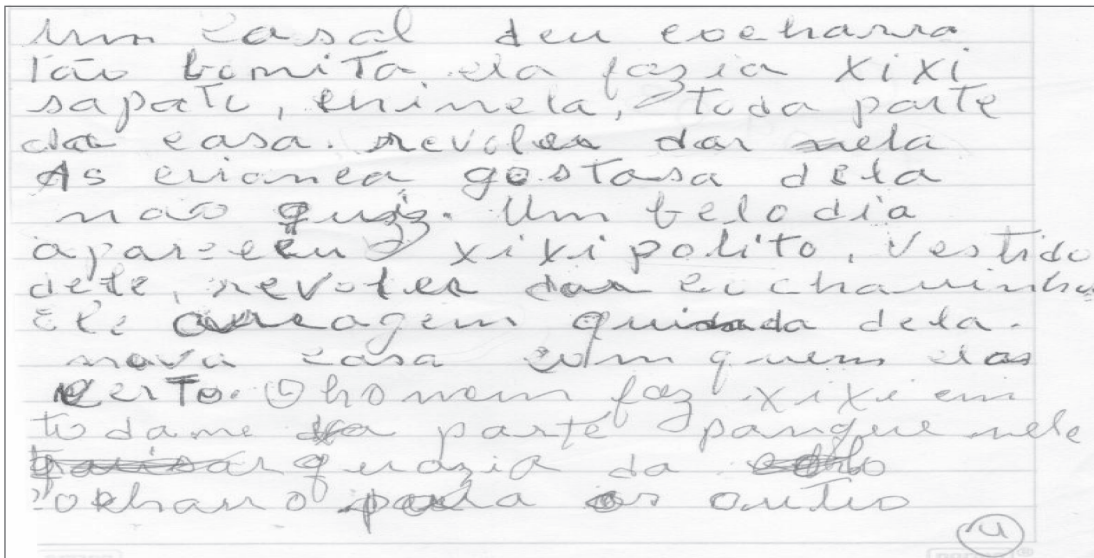 Um casal deu cocharra
Tão bonita ela fazia xixi
sapato, chinela, toda parte
da casa. revoleu dar nela
As criancea gostasa dela
não quiz. Um belo dia
apareceu xixi polito, Vestido
dele, revoleu dar cochauinha
Ele coragem quidada dela.
nova casa com quem elas
certo. O homem faz xixi em
todame parte pangue nele
quazia da
cochauo para os outro
4